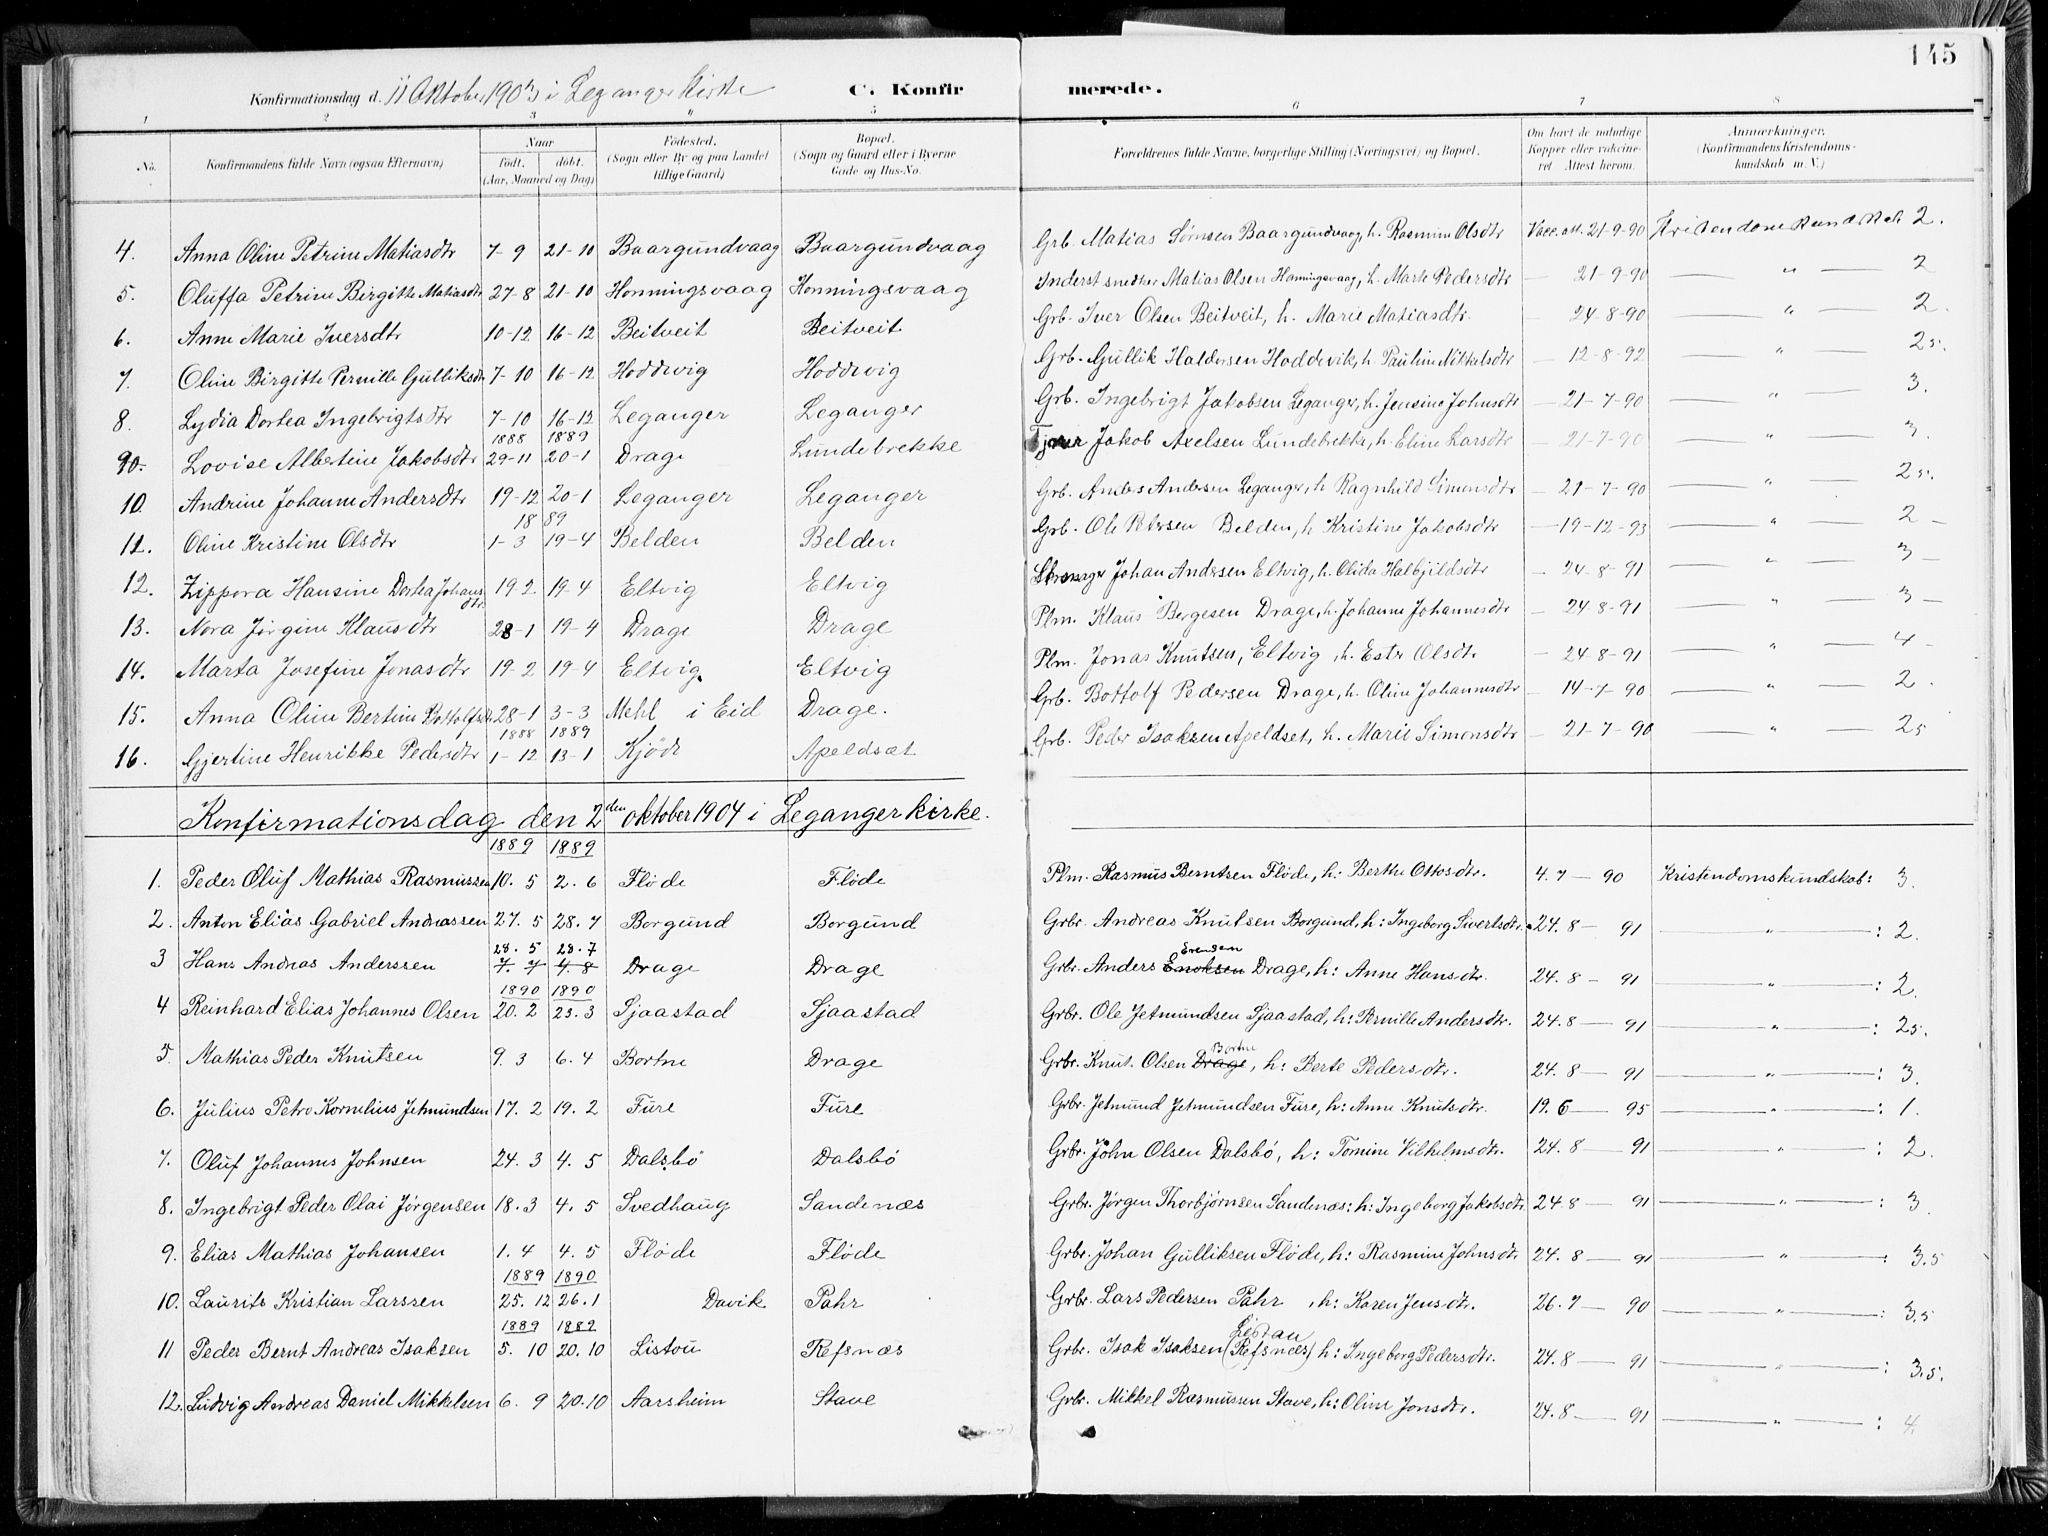 145
Konfirmationsdag d. 11 Oktober 1903 i Leganger Kirke C. Konfir merede.
1 2 3 4 5 6 7 8
No. Konfirmandens fulde Navn (ogsaa Efternavn) Naar født. døbt. (Aar, Maaned og Dag) Fødested. (Sogn eller By og paa Landet tillige Gaard) Bopæl. (Sogn og Gaard eller i Byerne Gade og Hus-No. Forældrenes fulde Navne, borgerlige Stilling (Næringsvei) og Bopæl. Om havt de naturlige Kopper eller vakcineret Attest herom. Anmærkninger. (Konfirmandens Kristendomskundskab m. V.)
4. Anna Oline Petrine Matiasdtr 7-9 21-10 Baargundvaag Baargundvaag Grb. Matias Sørnsen Baargundvaag, h. Rasmine Olsdtr Vacc. att. 21-9-90 Kristendomskundskab 2.
5. Oluffa Petrine Birgitte Matiasdtr 27-8 21-10 Honningsvaag Honningsvaag Inderst snedker Matias Olsen Honningsvaag, h. Marte Pedersdtr — 21-9-90 — " — 2
6. Anne Marie Iversdtr 10-12 16-12 Beitveit Beitveit Grb. Iver Olsen Beitveit, h. Marie Matiasdtr. — 24-8-90 — " — 2.
7. Oline Birgitte Pernille Gulliksdtr 7-10 16-12 Hoddvig Hoddvig Grb. Gullik Haldorsen Hoddevik, h. Pauline Nikkelsdtr — 12-8-92 — " — 25.
8. Lydia Dortea Ingebrigtsdtr 7-10 16-12 Leganger Leganger Grb. Ingebrigt Jakobsen Leganger, h. Jensine Johnsdtr — 21-7-90 — " — 3.
1888 1889
90. Lovise Albertine Jakobsdtr 29-11 20-1 Drage Lundebrekke Jakob Axelsen Lundebrekke, h. Eline Larsdtr — 21-7-90 — " — 3.
10. Andrine Johanne Andersdtr 19-12 20-1 Leganger Leganger Grb. Anders Andersen Leganger, h Ragnhild Simonsdtr — 21-7-90 — " — 25.
18 89
11. Oline Kristine Olsdtr 1-3 19-4 Belden Belden Grb. Ole Petersen Belden, h Kristine Jakobsdtr — 19-12-93 — " — 2 —
12. Zippora Hansine Dortea Johansdtr. 19 2 19-4 Eltvig Eltvig Johan Andersen Eltvig, h. Olida Halbjildsdtr — 24-8-91 — " — 3 —
13. Nora Jørgine Klausdtr 28-1 19-4 Drage Drage Plm. Klaus Børgesen Drage, h. Johanne Johannesdtr — 24-8-91 — " — 3 —
14. Marta Josefine Jonasdtr 19-2 19-4 Eltvig Eltvig Plm. Jonas Knutsen, Eltvig, h. Ester Olsdtr — 24-8-91 — " — 4 -
15. Anna Oline Bertine Bottolfsdtr 28-1 3-3 Mehl i Eid Drage. Grb. Bottolf Pedersen Drage, h. Oline Johannesdtr — 14-7-90 — " — 2.
1888 1889
16. Gjertine Henrikke Pedersdtr 1-12 13-1 Kjöde Apeldsæt Grb. Peder Isaksen Apeldset, h. Marie Simonsdtr — 21-7-90 — " — 25
Konfirmationsdag den 2den oktober 1904 i Leganger kirke.
1889 1889
1. Peder Oluf Mathias Rasmussen 10. 5 2. 6 Flöde Flöde Plm. Rasmus Berntsen Flöde, h: Berthe Ottosdtr. 4. 7 — 90 Kristendomskundskab: 3.
2. Anton Elias Gabriel Andreassen 27. 5 28. 7 Borgund Borgund Grbr. Andreas Knutsen Borgund, h: Ingeborg Sivertsdtr. 24. 8 — 91 — " — : 2.
28. 5 28. 7 Evensen
3 Hans Andreas Anderssen 7. 7 4. 8 Drage Drage Grbr. Anders Enoksen Drage, h: Anne Hansdtr. 24. 8 — 91 — " — : 2.
1890 1890
4 Reinhard Elias Johannes Olsen 20. 2 23. 3 Sjaastad Sjaastad Grbr. Ole Jetmundsen Sjaastad, h: Pernille Andersdtr. 24. 8 — 91 — " — : 25.
Bortne
5. Mathias Peder Knutsen 9. 3 6. 4 Bortne Drage Grbr. Knut Olsen Drage, h: Berte Pedersdtr. 24. 8 — 91 — " — : 3.
6. Julius Petro Kornelius Jetmundsen 17. 2 19. 2 Füre Füre Grbr. Jetmund Jetmundsen Füre, h: Anne Knutsdtr. 19. 6 — 95 — " — : 1.
7. Oluf Johannes Johnsen 24. 3 4. 5 Dalsbö Dalsbö Grbr. John Olsen Dalsbö, h: Tomine Vilhelmsdtr. 24. 8 — 91 — " — : 2.
8. Ingebrigt Peder Olai Jørgensen 18. 3 4. 5 Svedhaug Sandenæs Grbr. Jørgen Thorbjørnsen Sandenæs: h: Ingeborg Jakobsdtr. 24. 8 — 91 — " — : 3
9. Elias Mathias Johansen 1. 4 4. 5 Flöde Flöde Grbr. Johan Gulliksen Flöde, h: Rasmine Johnsdtr. 24. 8 — 91 — " — : 3.5
1889 1890
10. Laurits Kristian Larssen 25. 12 26. 1 Davik Pahr Grbr. Lars Pedersen Pahr, h: Karen Jensdtr. 26. 7 — 90 — " — : 3.5
1889 1889 Listau
11 Peder Bernt Andreas Isaksen 5. 10 20. 10 Listou Refsnæs Grbr. Isak Isaksen (Refsnæs) h: Ingeborg Pedersdtr. 24. 8 — 91 — " — : 3.5.
12. Ludvig Andreas Daniel Mikkelsen 6. 9 20. 10 Aarsheim Stave Grbr. Mikkel Rasmussen Stave, h: Oline Jonsdtr. 24. 8 — 91 — " — : 4.